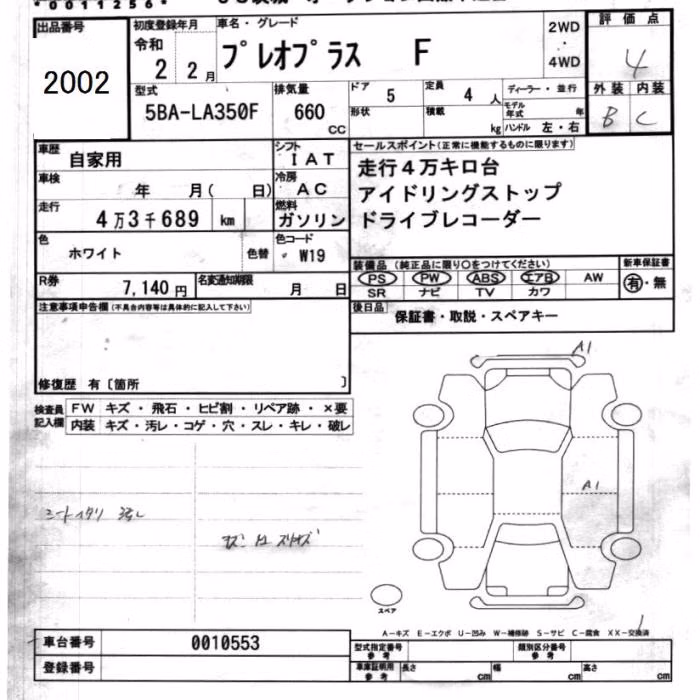 *0011256*
出品番号
2002
初度登録年月
令和
2 2月
車名・グレード
プレオプラス F
2WD
・
4WD
評価点
4
外装 内装
B C
型式
5BA-LA350F
排気量
660
cc
ドア
5
定員
4 人
形状
積載
kg
ディーラー・並行
モデル年式 年
ハンドル 左・右
車歴
自家用
シフト
IAT
車検
年 月( 日)
冷房
AC
走行
4万3千689 km
燃料
ガソリン
色
ホワイト
色替
色コード
W19
R券
7,140円
名変通知期限
月 日
セールスポイント(正常に機能するものに限ります)
走行4万キロ台
アイドリングストップ
ドライブレコーダー
装備品 (純正品に限り○をつけてください)
PS PW ABS エアB AW
SR ナビ TV カワ
新車保証書
有・無
後日品
保証書・取説・スペアキー
注意事項申告欄(不具合内容等は具体的に記入して下さい)
修復歴 有〔箇所 〕
検査員記入欄
FW キズ・飛石・ヒビ割・リペア跡・×要
内装 キズ・汚レ・コゲ・穴・スレ・キレ・破レ
A1
A1
スペア
A-キズ E-エクボ U-凹み W-補修跡 S-サビ C-腐食 XX-交換済
車台番号
0010553
登録番号
型式指定番号 参考
類別区分番号 参考
車庫証明用 参考
長さ cm
幅 cm
高さ cm